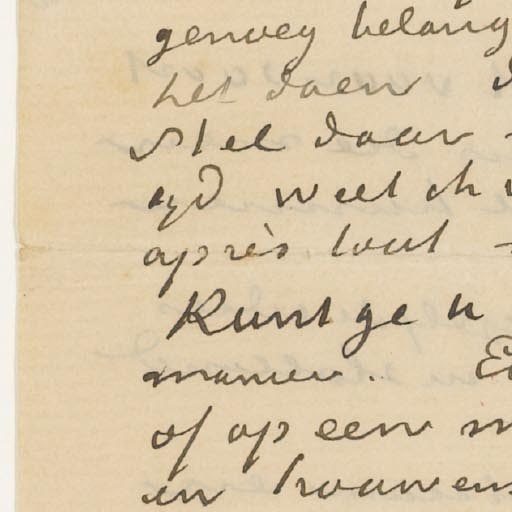 genoeg belang
het doen
Stel daar
zyd weet ik
après tout
Kunt ge u
manier..
of op een
en trouwens